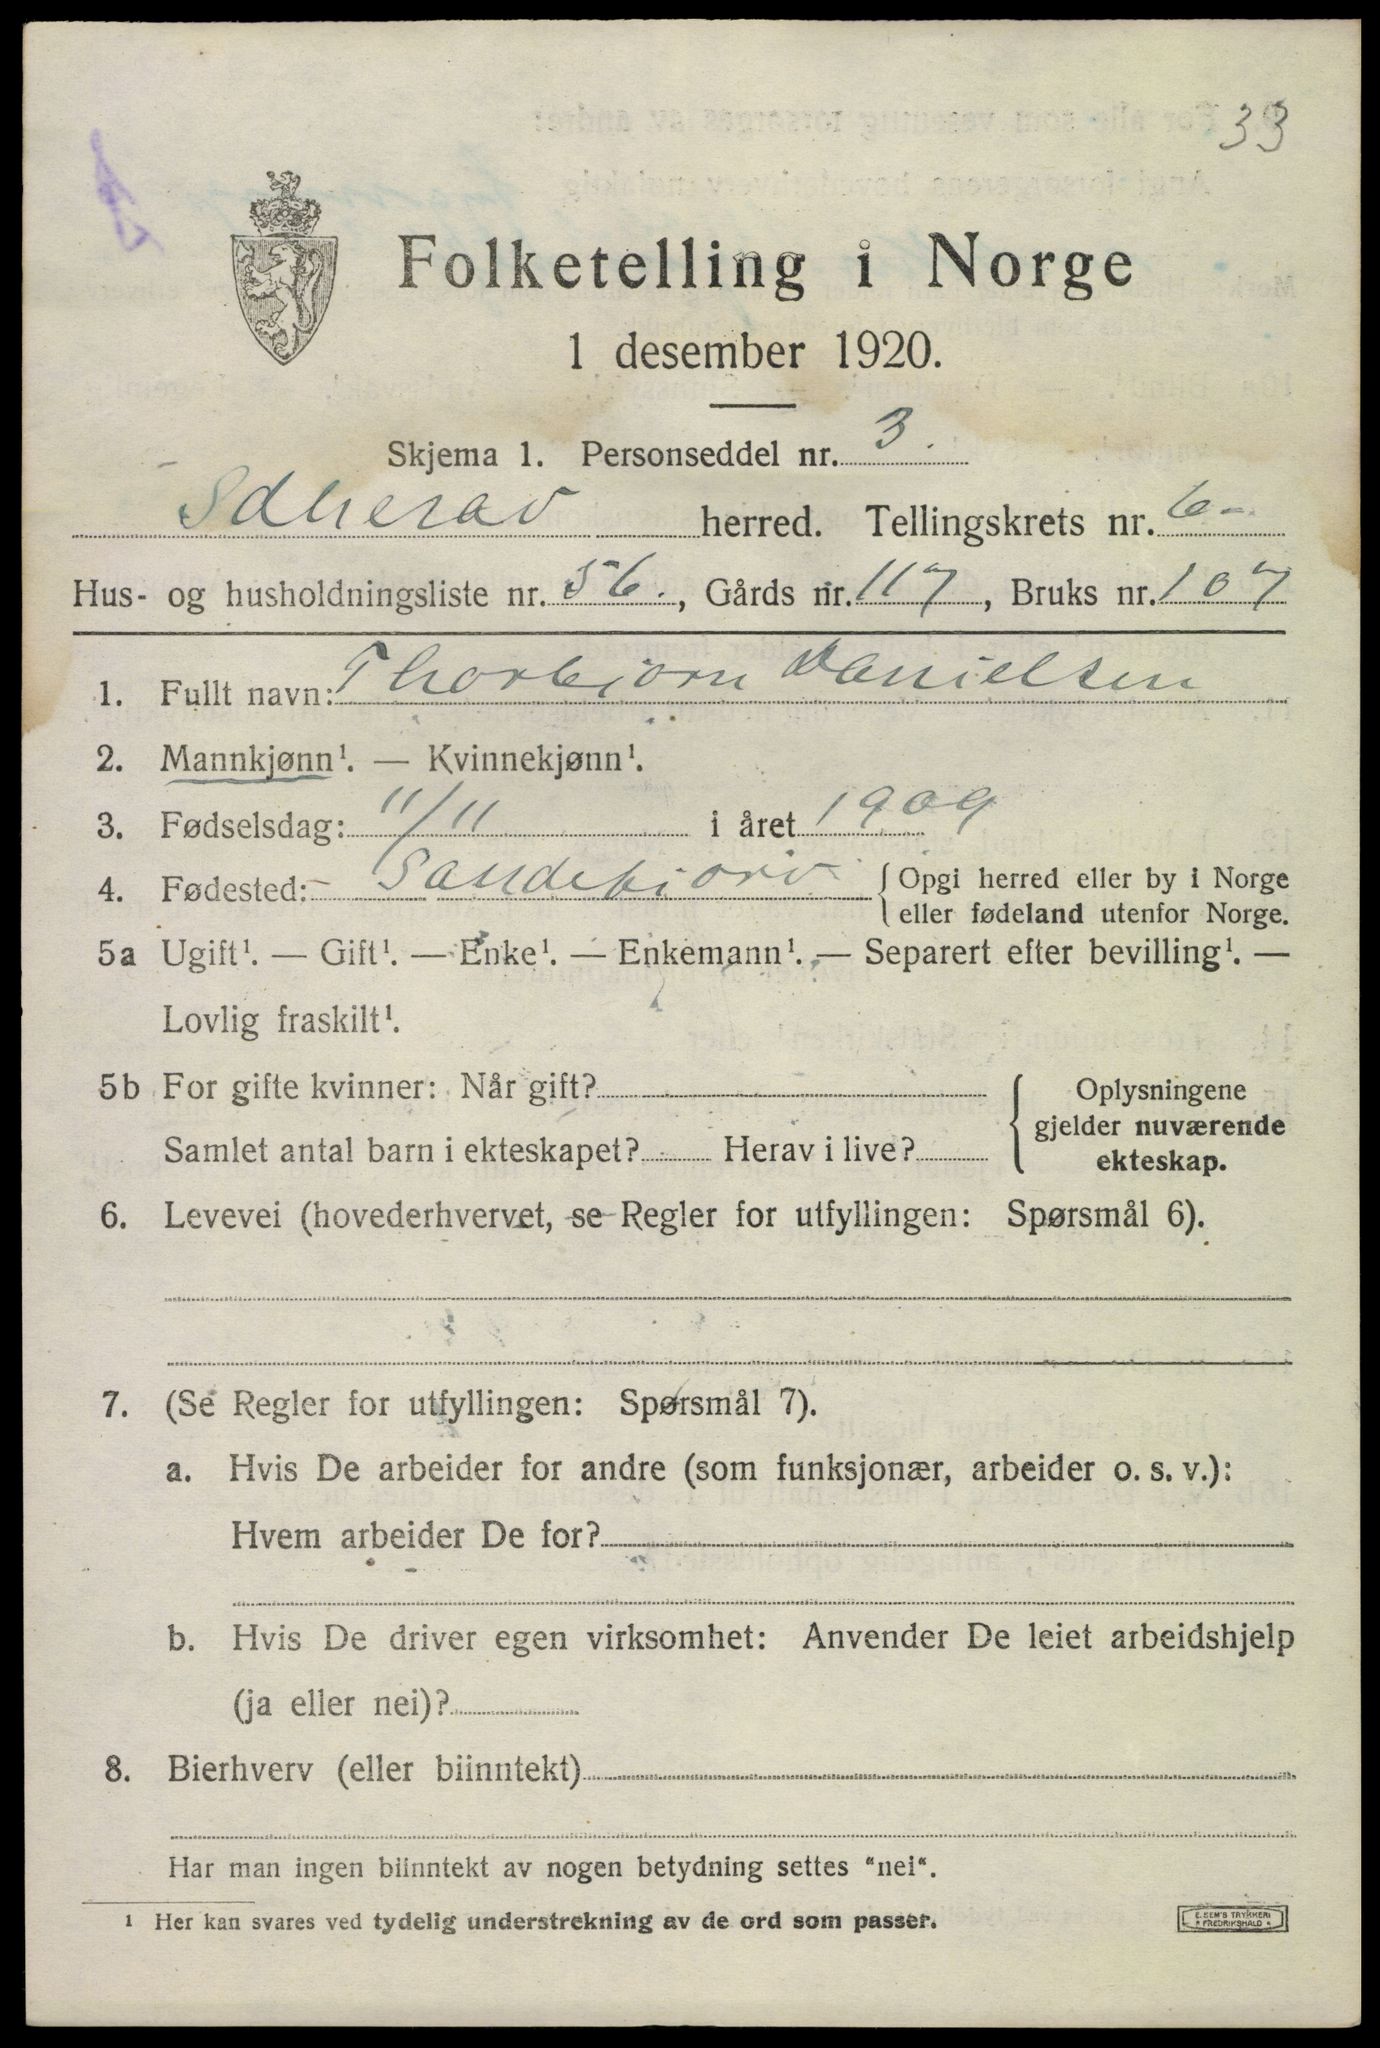 33
Folketelling i Norge
1 desember 1920.
Skjema 1. Personseddel nr. 3.
Sdherav herred. Tellingskrets nr. 6
Hus- og husholdningsliste nr. 56., Gårds nr. 117, Bruks nr. 107
1. Fullt navn: Thorbjorn Danielsen
2. Mannkjønn¹. — Kvinnekjønn¹.
3. Fødselsdag: 11/11 i året 1909
4. Fødested: Sandebjorv { Opgi herred eller by i Norge
eller fødeland utenfor Norge.
5a Ugift¹. — Gift¹. — Enke¹. — Enkemann¹. — Separert efter bevilling¹. —
Lovlig fraskilt¹.
5b For gifte kvinner: Når gift? Oplysningene
gjelder nuværende
Samlet antal barn i ekteskapet? Herav i live? ekteskap.
6. Levevei (hovederhvervet, se Regler for utfyllingen: Spørsmål 6).
7. (Se Regler for utfyllingen: Spørsmål 7).
a. Hvis De arbeider for andre (som funksjonær, arbeider o. s. v.):
Hvem arbeider De for?
b. Hvis De driver egen virksomhet: Anvender De leiet arbeidshjelp
(ja eller nei)?
8. Bierhverv (eller biinntekt)
Har man ingen biinntekt av nogen betydning settes "nei".
¹ Her kan svares ved tydelig understrekning av de ord som passer.
E. SEM'S TRYKKERI
FREDRIKSHALD